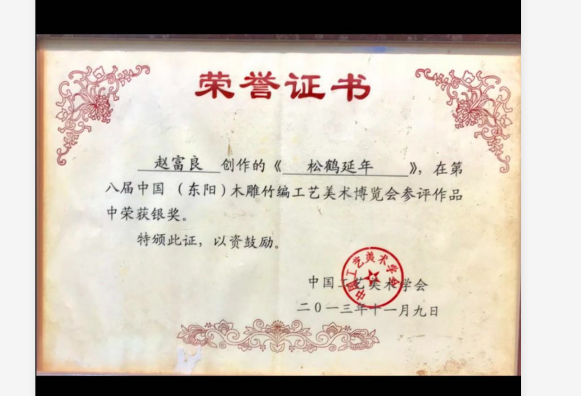 荣誉证书
赵富良 创作的《 松鹤延年 》，在第
八届中国（东阳）木雕竹编工艺美术博览会参评作品
中荣获银奖。
特颁此证，以资鼓励。
中国工艺美术学会
中国工艺美术学会
二〇一三年十一月九日